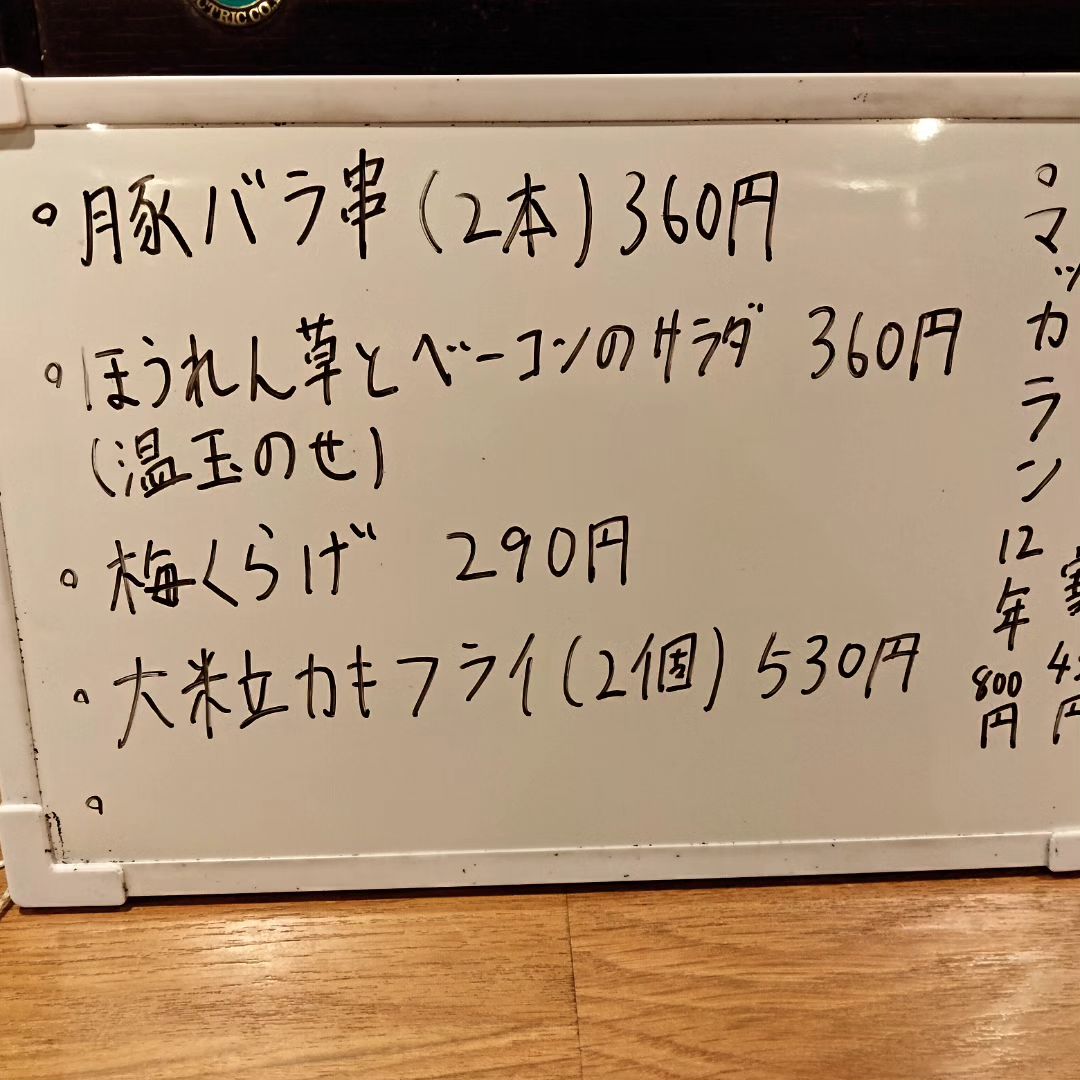 CTRIC CO.
豚バラ串(2本)360円
ほうれん草とベーコンのサラダ 360円
(温玉のせ)
梅くらげ 290円
大粒カキフライ(2個)530円
マッカラン12年800円